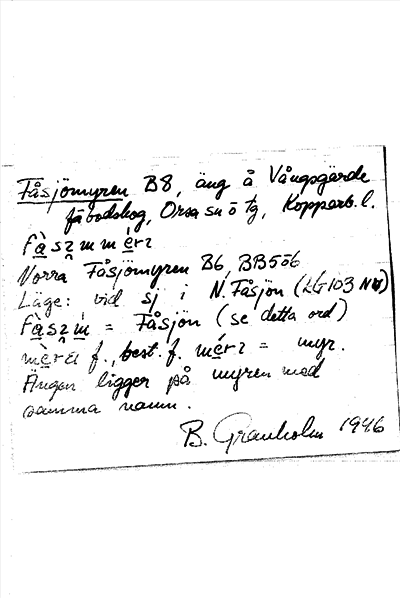 Fåsjömyren B8, äng å Vångsgärde
fäbodskog, Orsa sn o tg, Kopparb. l.
Norra Fåsjömyren B6, BB556
Läge: vid sj i N. Fåsjön (LG103 NW)
= Fåsjön (se detta ord)
f., best. f. = myr.
Ängen ligger på myren med
samma namn.
B. Granholm 1946